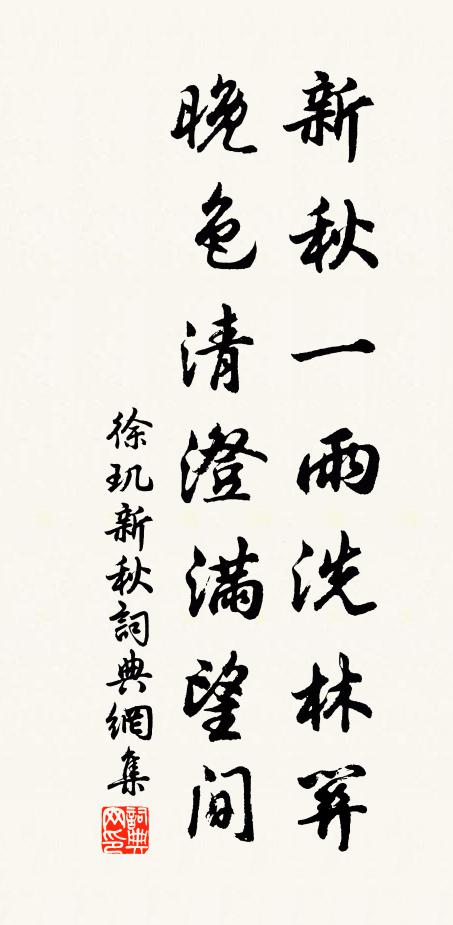 新秋一雨洗林關
晚色清澄滿望間
徐玑新秋詞典網集
詞典
网印